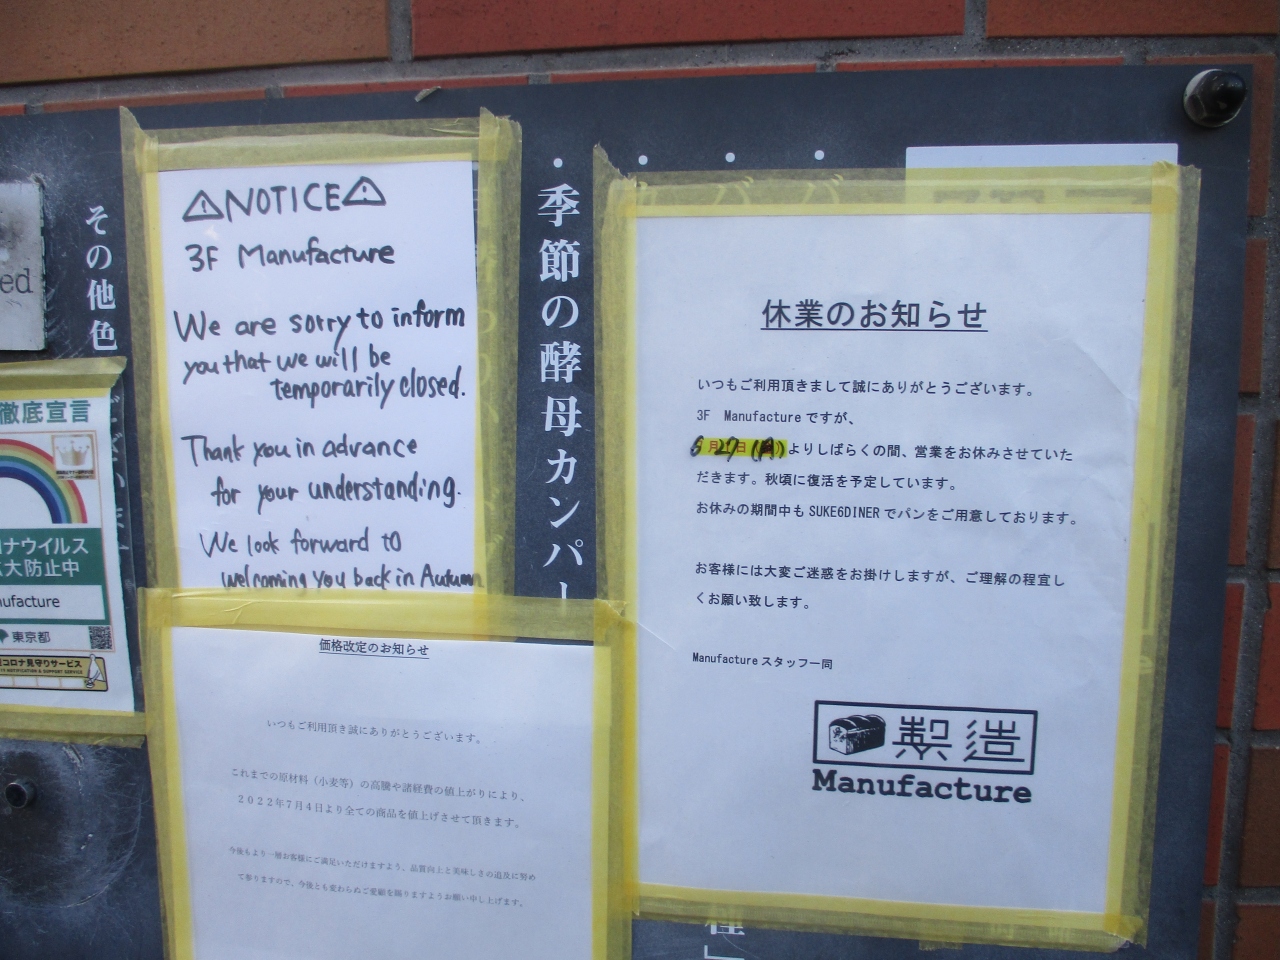 ed
その他色
徹底宣言
ナウイルス
大防止中
ufacture
東京都
コロナ見守りサービス
⚠NOTICE⚠
3F Manufacture
We are sorry to inform
you that we will be
temporarily closed.
Thank you in advance
for your understanding.
We look forward to
welcoming you back in Autumn
価格改定のお知らせ
いつもご利用頂き誠にありがとうございます。
これまでの原材料（小麦等）の高騰や諸経費の値上がりにより、
２０２２年７月４日より全ての商品を値上げさせて頂きます。
今後もより一層お客様にご満足いただけますよう、品質向上と美味しさの追及に努め
て参りますので、今後とも変わらぬご愛顧を賜りますようお願い申し上げます。
・季節の酵母カンパー
休業のお知らせ
いつもご利用頂きまして誠にありがとうございます。
3F Manufactureですが、
月27日(月)よりしばらくの間、営業をお休みさせていた
だきます。秋頃に復活を予定しています。
お休みの期間中もSUKE6DINERでパンをご用意しております。
お客様には大変ご迷惑をお掛けしますが、ご理解の程宜し
くお願い致します。
Manufactureスタッフ一同
製造
Manufacture
種」